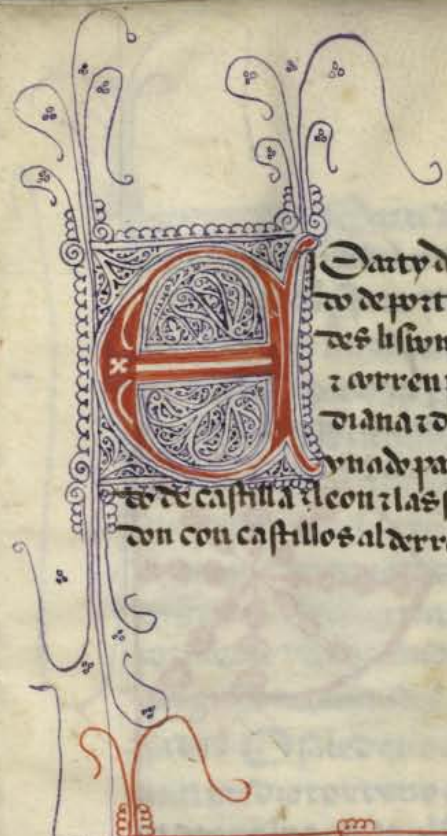 E party d
do de port
des lisbon
⁊ corren
diana ⁊ d
ynado pa
do de castilla ⁊ leon ⁊ las
don con castillos al derre